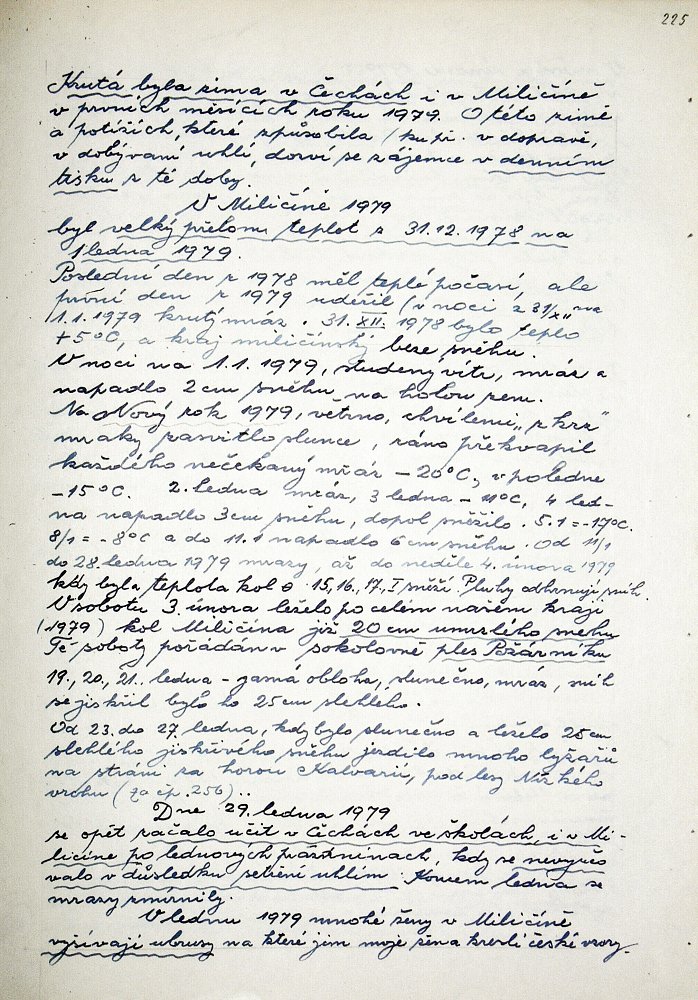 225
Krutá byla zima v Čechách i v Miličíně
v prvních měsících roku 1979. O této zimě
a potížích, které způsobila (ku př. v dopravě,
v dobývaní uhlí, dozví se zájemce v denním
tisku z té doby.
V Miličíně 1979
byl velký přelom teplot z 31.12.1978 na
1 ledna 1979.
Poslední den r 1978 měl teplé počasí, ale
první den r 1979 udeřil (v noci z 31/XII na
1.1.1979 krutý mráz. 31. XII. 1978 bylo teplo
+5°C, a kraj miličínský beze sněhu.
V noci na 1.1.1979, studený vítr, mráz a
napadlo 2 cm sněhu na holou zem.
Na Nový rok 1979, větrno, chvílemi „zkrz"
mraky zasvitlo slunce, ráno překvapil
každého nečekaný mráz -20°C, v poledne
-15°C. 2. ledna mráz, 3 ledna - 11°C, 4 led-
na napadlo 3 cm sněhu, dopol sněžilo. 5.1 = -17°C.
8/1 = - 8°C a do 11.1 napadlo 6 cm sněhu. Od 11/1
do 28. ledna 1979 mrazy, až do neděle 4. února 1979
kdy byla teplota kol 0. 15, 16, 17, I sněží. Pluhy odhrnují sníh.
V sobotu 3. února leželo po celém našem kraji
(1979) kol Miličína již 20 cm umrzlého snehu
Té soboty pořádán v sokolovně ples Požárníku
19., 20., 21. ledna - jasná obloha, slunečno, mráz, sníh
se jiskřil bylo ho 25 cm slehlého.
Od 23. do 27. ledna, kdy bylo slunečno a leželo 25 cm
slehlého jiskřivého sněhu jezdilo mnoho lyžařů
na stráni za horou Kalvarií, pod lesy Nízkého
vrchu (za čp. 256)..
Dne 29. ledna 1979
se opět začalo učit v Čechách ve školách, i v Mi-
ličíne po lednových prázdninách, kdy se nevyučo
valo v důsledku šetření uhlím. Koncem ledna se
mrazy zmírnily.
V lednu 1979 mnohé ženy v Miličíně
vyšívají ubrusy na které jim moje žena kreslí české vzory.